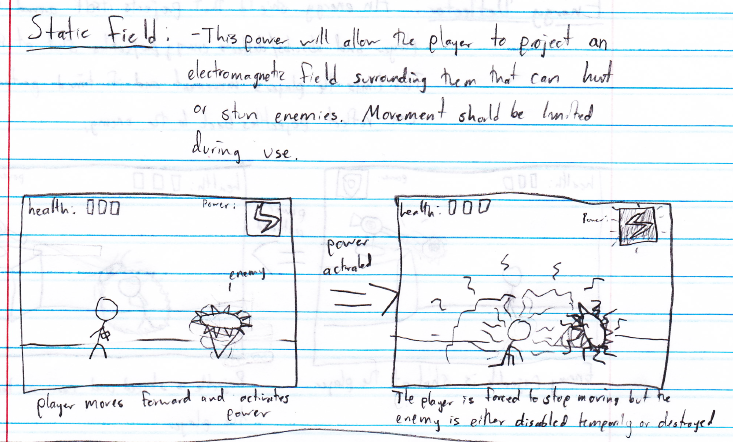 Static Field: - This power will allow the player to project an
electromagnetic field surrounding them that can hurt
or stun enemies. Movement should be limited
during use.
health: 000
Power:
enemy
power
activated
health: 000
Power:
player moves forward and activates
power
The player is forced to stop moving but the
enemy is either disabled temporily or destroyed